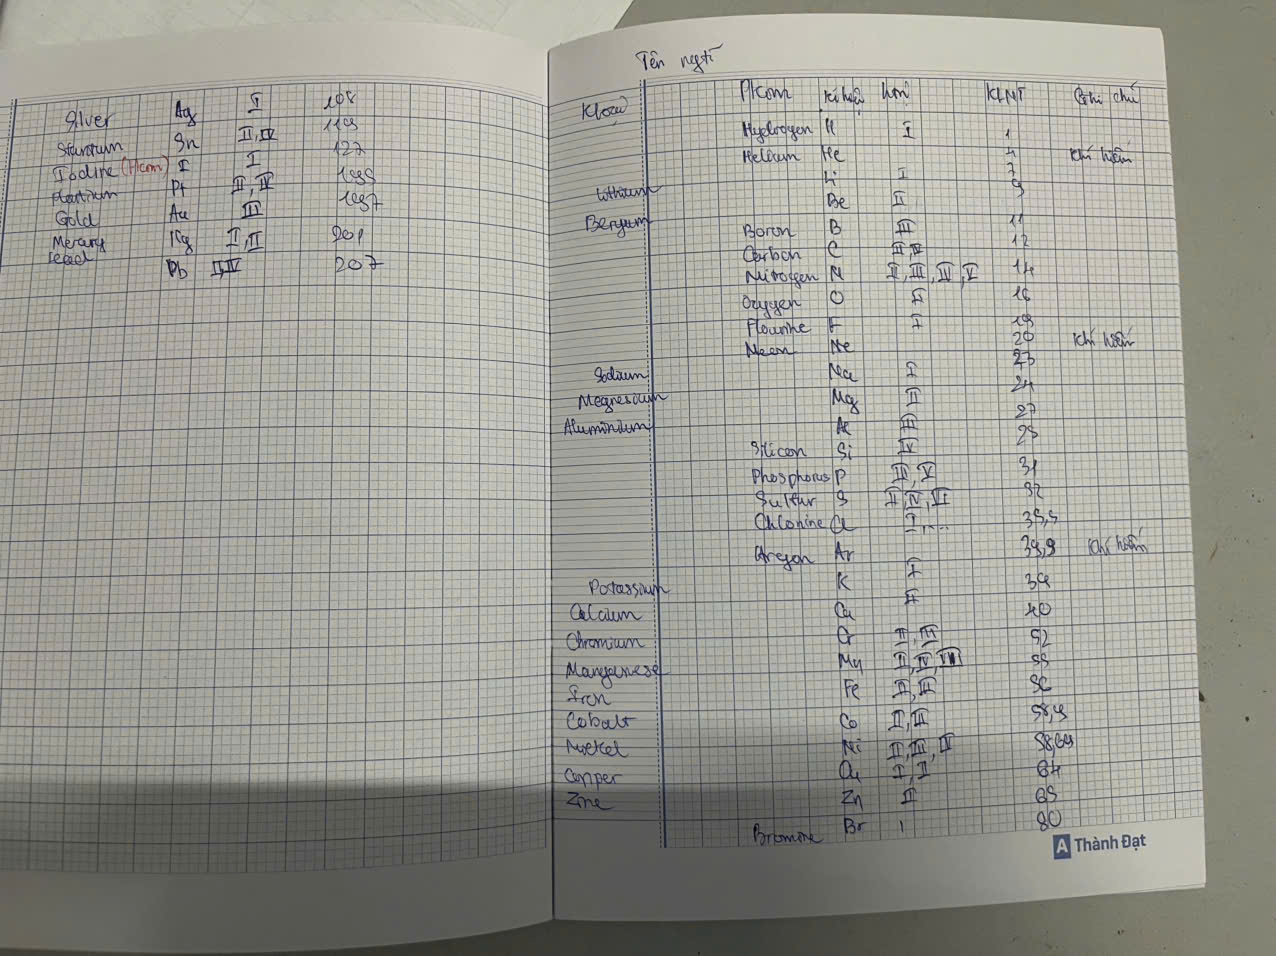 Silver Ag I 108
Stantum Sn II, IV 119
Iodine (Pkom) I I 127
Platium Pt II, IV 195
Gold Au III 197
Mercury Hg I, II 201
Lead Pb II, IV 207
Tên ngtố
Kloại Pkcom Kí hiệu Hoá KLNT Ghi chú
Hydrogen H I 1
Helium He 4 Khí hiếm
Lithium Li I 7
Beryum Be II 9
Boron B III 11
Carbon C II, IV 12
Nitrogen N II, III, IV, V 14
Oxygen O II 16
Flourine F I 19
Neon Ne 20 Khí hiếm
Sodium Na I 23
Megnesium Mg II 24
Aluminium Al III 27
Silicon Si IV 28
Phosphorus P III, V 31
Sulfur S II, IV, VI 32
Chlorine Cl I,.... 35,5
Argon Ar 39,9 Khí hiếm
Potassium K I 39
Calcium Ca II 40
Chromium Cr II, III 52
Manganese Mn II, IV, VII 55
Iron Fe II, III 56
Cobalt Co II, III 58,9
Nickel Ni II, III, IV 58,69
Copper Cu I, II 64
Zinc Zn II 65
Bromine Br I 80
A Thành Đạt